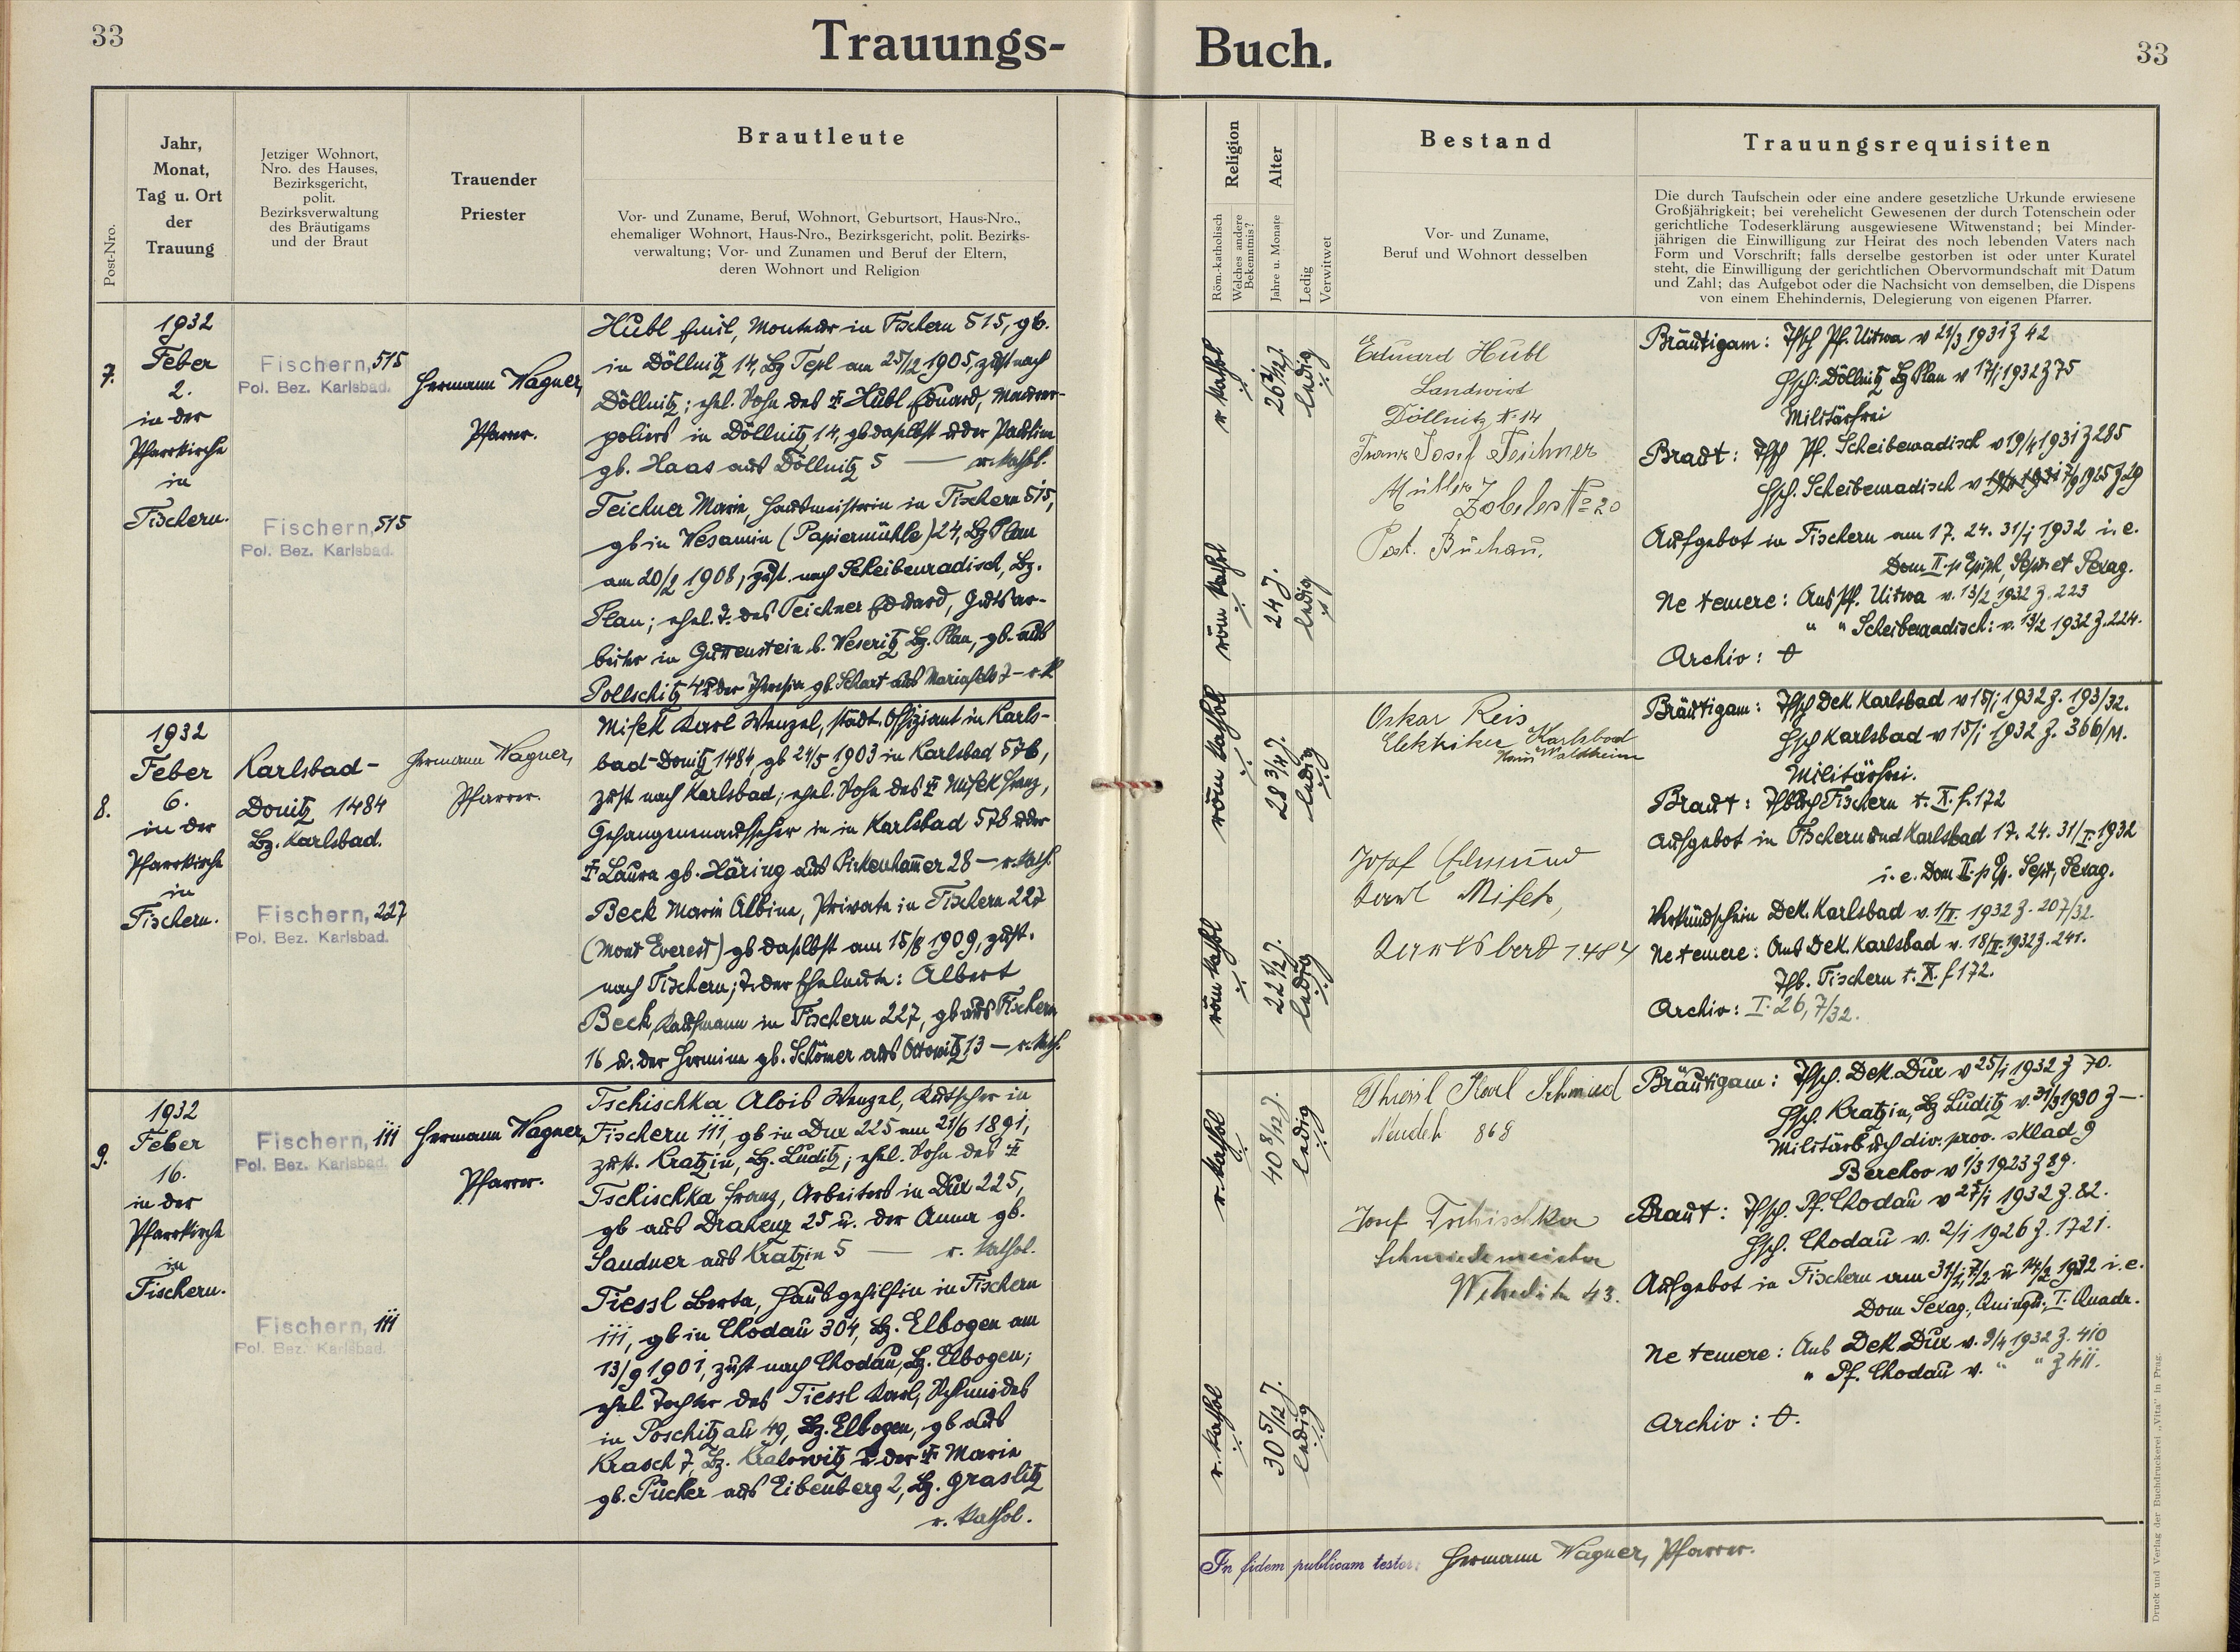 33
Trauungs-
Buch.
33
Post-Nro.
Jahr,
Monat,
Tag u. Ort
der
Trauung
Jetziger Wohnort,
Nro. des Hauses,
Bezirksgericht,
polit.
Bezirksverwaltung
des Bräutigams
und der Braut
Trauender
Priester
Brautleute
Vor- und Zuname, Beruf, Wohnort, Geburtsort, Haus-Nro.,
ehemaliger Wohnort, Haus-Nro., Bezirksgericht, polit. Bezirks-
verwaltung; Vor- und Zunamen und Beruf der Eltern,
deren Wohnort und Religion
Religion
Röm.-katholisch
Welches andere
Bekenntnis?
Alter
Jahre u. Monate
Ledig
Verwitwet
Bestand
Vor- und Zuname,
Beruf und Wohnort desselben
Trauungsrequisiten
Die durch Taufschein oder eine andere gesetzliche Urkunde erwiesene
Großjährigkeit; bei verehelicht Gewesenen der durch Totenschein oder
gerichtliche Todeserklärung ausgewiesene Witwenstand; bei Minder-
jährigen die Einwilligung zur Heirat des noch lebenden Vaters nach
Form und Vorschrift; falls derselbe gestorben ist oder unter Kuratel
steht, die Einwilligung der gerichtlichen Obervormundschaft mit Datum
und Zahl; das Aufgebot oder die Nachsicht von demselben, die Dispens
von einem Ehehindernis, Delegierung von eigenen Pfarrer.
7.
1932
Feber
2.
in der
Pfarrkirche
in
Fischern.
Fischern, 515
Pol. Bez. Karlsbad.
Fischern, 515
Pol. Bez. Karlsbad.
Hermann Wagner,
Pfarrer.
Hubl Emil, Monteur in Fischern 515, gb.
in Döllnitz 14, Bz Tepl am 25/12 1905, zust nach
Döllnitz; ehel. Sohn des Hubl Eduard, Maurer-
poliers in Döllnitz 14, gb daselbst u der Paulina
gb. Haas aus Döllnitz 5 — r. kathol.
Teichner Marie, Hausmeisterin in Fischern 515,
gb in Wesamin (Papiermühle) 24, Bz Plan
am 20/2 1908, zust. nach Scheibenradisch, Bz.
Plan; ehel. T. des Teichner Eduard, Gutsar-
beiters in Guttenstein b. Weseritz Bz. Plan, gb. aus
Pollschitz 4 u der Theresia gb. Schart aus Mariafels 7 - r. k
r kathol
26 2/12 J.
ledig
röm kathol
24 J.
ledig
Eduard Hubl
Landwirt
Döllnitz N. 14
Franz Josef Teichner
Müller
Zobeles No 20
Post. Buchau.
Bräutigam: Tfsch Pf. Uitwa v 21/3 1931 Z 42
Hsch: Döllnitz Bz Plan v 17/1 1932 Z 75
Militärfrei
Braut: Tfsch Pf. Scheibenradisch v 19/4 1931 Z 285
Hsch. Scheibenradisch v 7/9 1925 Z 29
Aufgebot in Fischern am 17. 24. 31/1 1932 i. e.
Dom II. p Epiph, Sept et Sexag.
Ne temere: Aus Pf. Uitwa v. 13/2 1932 Z. 223
" " Scheibenradisch: v. 13/2 1932 Z. 224.
Archiv: 0
8.
1932
Feber
6.
in der
Pfarrkirche
in
Fischern.
Karlsbad-
Donitz 1484
Bz. Karlsbad.
Fischern, 227
Pol. Bez. Karlsbad.
Hermann Wagner,
Pfarrer.
Misek Karl Wenzel, städt. Offiziant in Karls-
bad-Donitz 1484, gb 24/5 1903 in Karlsbad 576,
zust nach Karlsbad; ehel. Sohn des Misek Franz,
Gefangenenaufseher in in Karlsbad 576 u der
Laura gb. Häring aus Pirkenhammer 28 — r. kath.
Beck Marie Albine, Private in Fischern 227
(Mont Everest) gb daselbst am 15/8 1909, zust.
nach Fischern; T. der Eheleute: Albert
Beck, Kaufmann in Fischern 227, gb aus Fischern
16 u. der Hermine gb. Schömer aus Ottowitz 13 — r. kath.
röm kathol
28 3/4 J.
ledig
röm kathol
22 1/2 J.
ledig
Oskar Reis
Elektriker Karlsbad
Haus Waldheim
Josef Edmund
Karl Misek,
Karlsbad 1484
Bräutigam: Tfsch Dek. Karlsbad v 15/1 1932 Z. 193/32.
Hsch Karlsbad v 15/1 1932 Z. 366/M.
Militärfrei.
Braut: Tfbuch Fischern t. X. f. 172
Aufgebot in Fischern und Karlsbad 17. 24. 31/I. 1932
i. e. Dom II. p Ep. Sept, Sexag.
Verkündschein Dek. Karlsbad v. 1/II. 1932 Z. 207/32.
Ne temere: Aus Dek. Karlsbad v. 18/II. 1932 Z. 241.
Tfb. Fischern t. X. f 172.
Archiv: I. 26, 7/32.
9.
1932
Feber
16.
in der
Pfarrkirche
in
Fischern.
Fischern, 111
Pol. Bez. Karlsbad.
Fischern, 111
Pol. Bez. Karlsbad.
Hermann Wagner,
Pfarrer.
Tschischka Alois Wenzel, Kutscher in
Fischern 111, gb in Dux 225 am 21/6 1891,
zust. Kratzin, Bz. Luditz; ehel. Sohn des
Tschischka Franz, Arbeiters in Dux 225,
gb aus Drahenz 25 u. der Anna gb.
Sandner aus Kratzin 5 — r. kathol.
Tiessl Berta, Hausgehilfin in Fischern
111, gb in Chodau 304, Bz. Elbogen am
13/9 1901, zust nach Chodau, Bz. Elbogen;
ehel. Tochter des Tiessl Karl, Schmiedes
in Poschitzau 49, Bz. Elbogen, gb aus
Krasch 7, Bz. Kralowitz u der Marie
gb. Pücher aus Eibenberg 2, Bz. Graslitz
r. kathol.
r. kathol
40 8/12 J.
ledig
r. kathol
30 5/12 J.
ledig
Karl Schmied
Neudek 868
Josef Tschischka
Schmiedemeister
Wehediz 43.
Bräutigam: Tfsch. Dek. Dux v 25/1 1932 Z 70.
Hsch. Kratzin, Bz Luditz v. 31/3 1930 Z —.
Militärbuch div. prov. sklad 9
Berehov v 1/3 1923 Z 89.
Braut: Tfsch. Pf. Chodau v 27/1 1932 Z. 82.
Hsch. Chodau v. 2/1 1926 Z. 1721.
Aufgebot in Fischern am 31/1, 7/2 u 14/2 1932 i. e.
Dom Sexag., Quinqu., I. Quadr.
Ne temere: Aus Dek. Dux v. 9/4 1932 Z. 410
" Pf. Chodau v. " " Z 411.
Archiv: 0.
In fidem publicam testor: Hermann Wagner, Pfarrer.
Druck und Verlag der Buchdruckerei „Vita" in Prag.